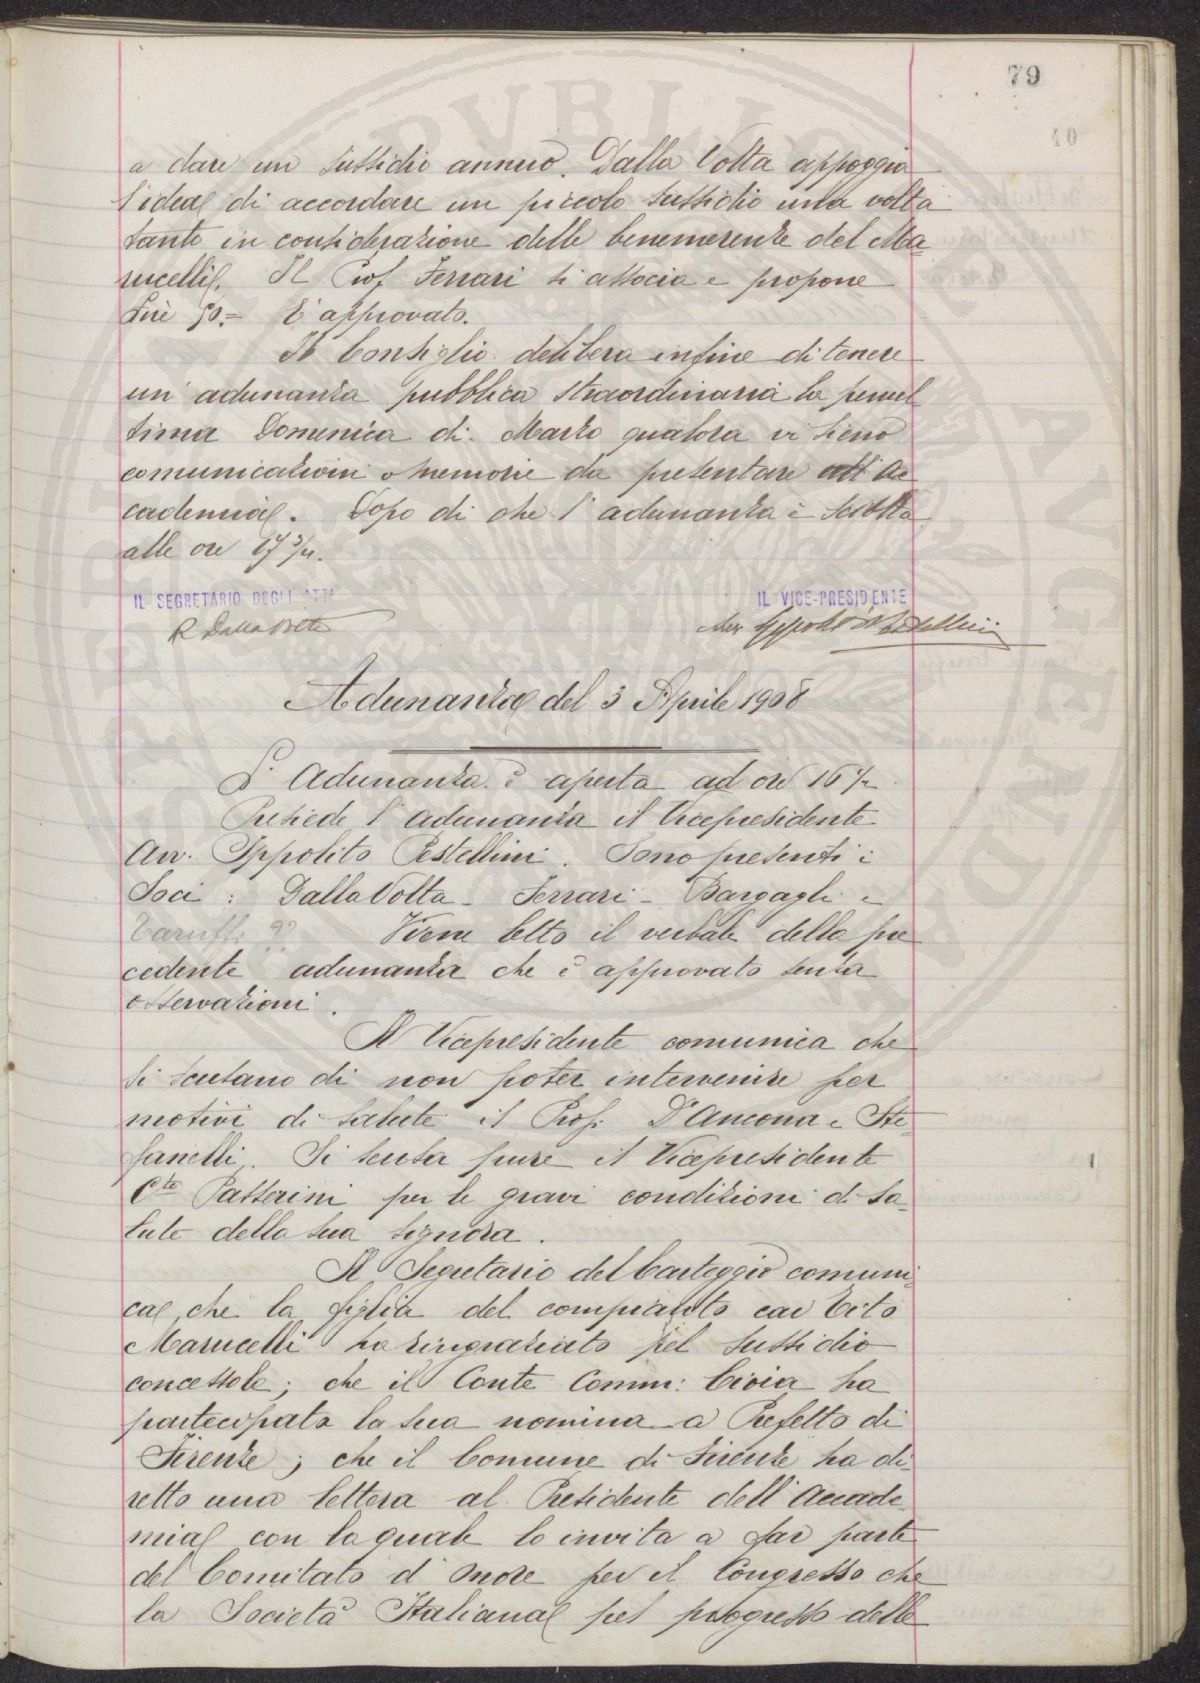 79
a dare un sussidio annuo. Dalla Volta appoggia
l'idea di accordare un piccolo sussidio una volta
tanto in considerazione delle benemerenze del Ma-
rucelli. Il Prof Ferrari si associa e propone
Lire 50.= È approvato.
Il Consiglio delibera infine di tenere
un' adunanza pubblica straordinaria la penul
tima Domenica di Marzo qualora vi sieno
comunicazioni o memorie da presentare all'Ac
cademia. Dopo di che l'adunanza è sciolta
alle ore 17 3/4.
IL SEGRETARIO DEGLI ATTI IL VICE-PRESIDENTE
R Dalla Volta Avv Ippolito Pestellini
Adunanza del 3 Aprile 1908
L' Adunanza è aperta ad ore 16 1/2
Presiede l'adunanza il Vicepresidente
Avv. Ippolito Pestellini. Sono presenti i
Soci: Dalla Volta - Ferrari - Bargagli e
Taruffi ?? Viene letto il verbale della pre
cedente adunanza che è approvato senza
osservazioni.
Il Vicepresidente comunica che
si scusano di non poter intervenire per
motivi di salute il Prof. D'Ancona e Ste-
fanelli. Si scusa pure il Vicepresidente
Cte Passerini per le gravi condizioni di sa-
lute della sua signora.
Il Segretario del Carteggio comuni-
ca, che la figlia del compianto cav Tito
Marucelli ha ringraziato pel sussidio
concessole; che il Conte Comm: Cioia ha
partecipato la sua nomina a Prefetto di
Firenze; che il Comune di Firenze ha di-
retto una lettera al Presidente dell'Accade
mia con la quale lo invita a far parte
del Comitato d'onore per il Congresso che
la Società Italiana pel progresso delle